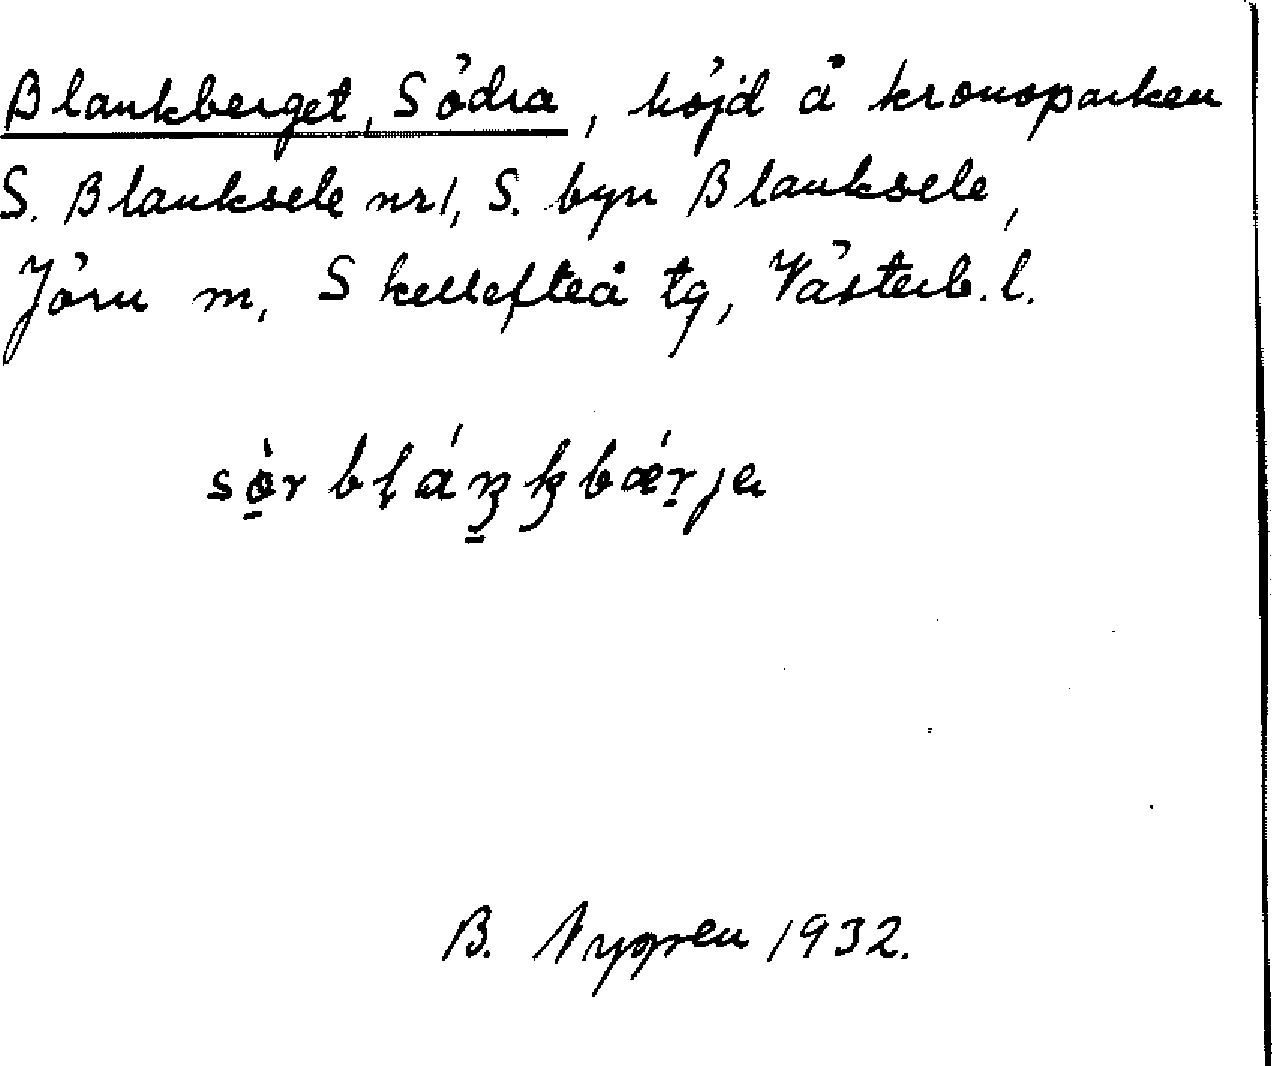 Blankberget, Södra, höjd å kronoparken
S. Blanksele nr 1, S. byn Blanksele,
Jörn m, Skellefteå tg, Västerb. l.
B. Nygren 1932.